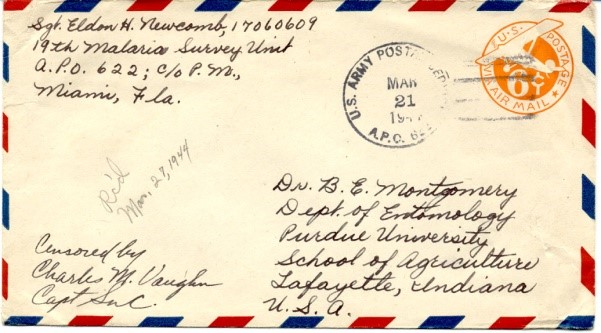 Sgt. Eldon H. Newcomb, 17060609
19th Malaria Survey Unit
A.P.O. 622; c/o P.M.,
Miami, Fla.
U.S. ARMY POSTAL
MAR
21
A.P.O.
U.S. POSTAGE
6¢
VIA AIR MAIL
Rc'd
Mar. 27, 1944
Dr. B. E. Montgomery
Dept. of Entomology
Purdue University
School of Agriculture
Lafayette, Indiana
U.S.A.
Censored by
Charles M. Vaughn
Capt SnC.